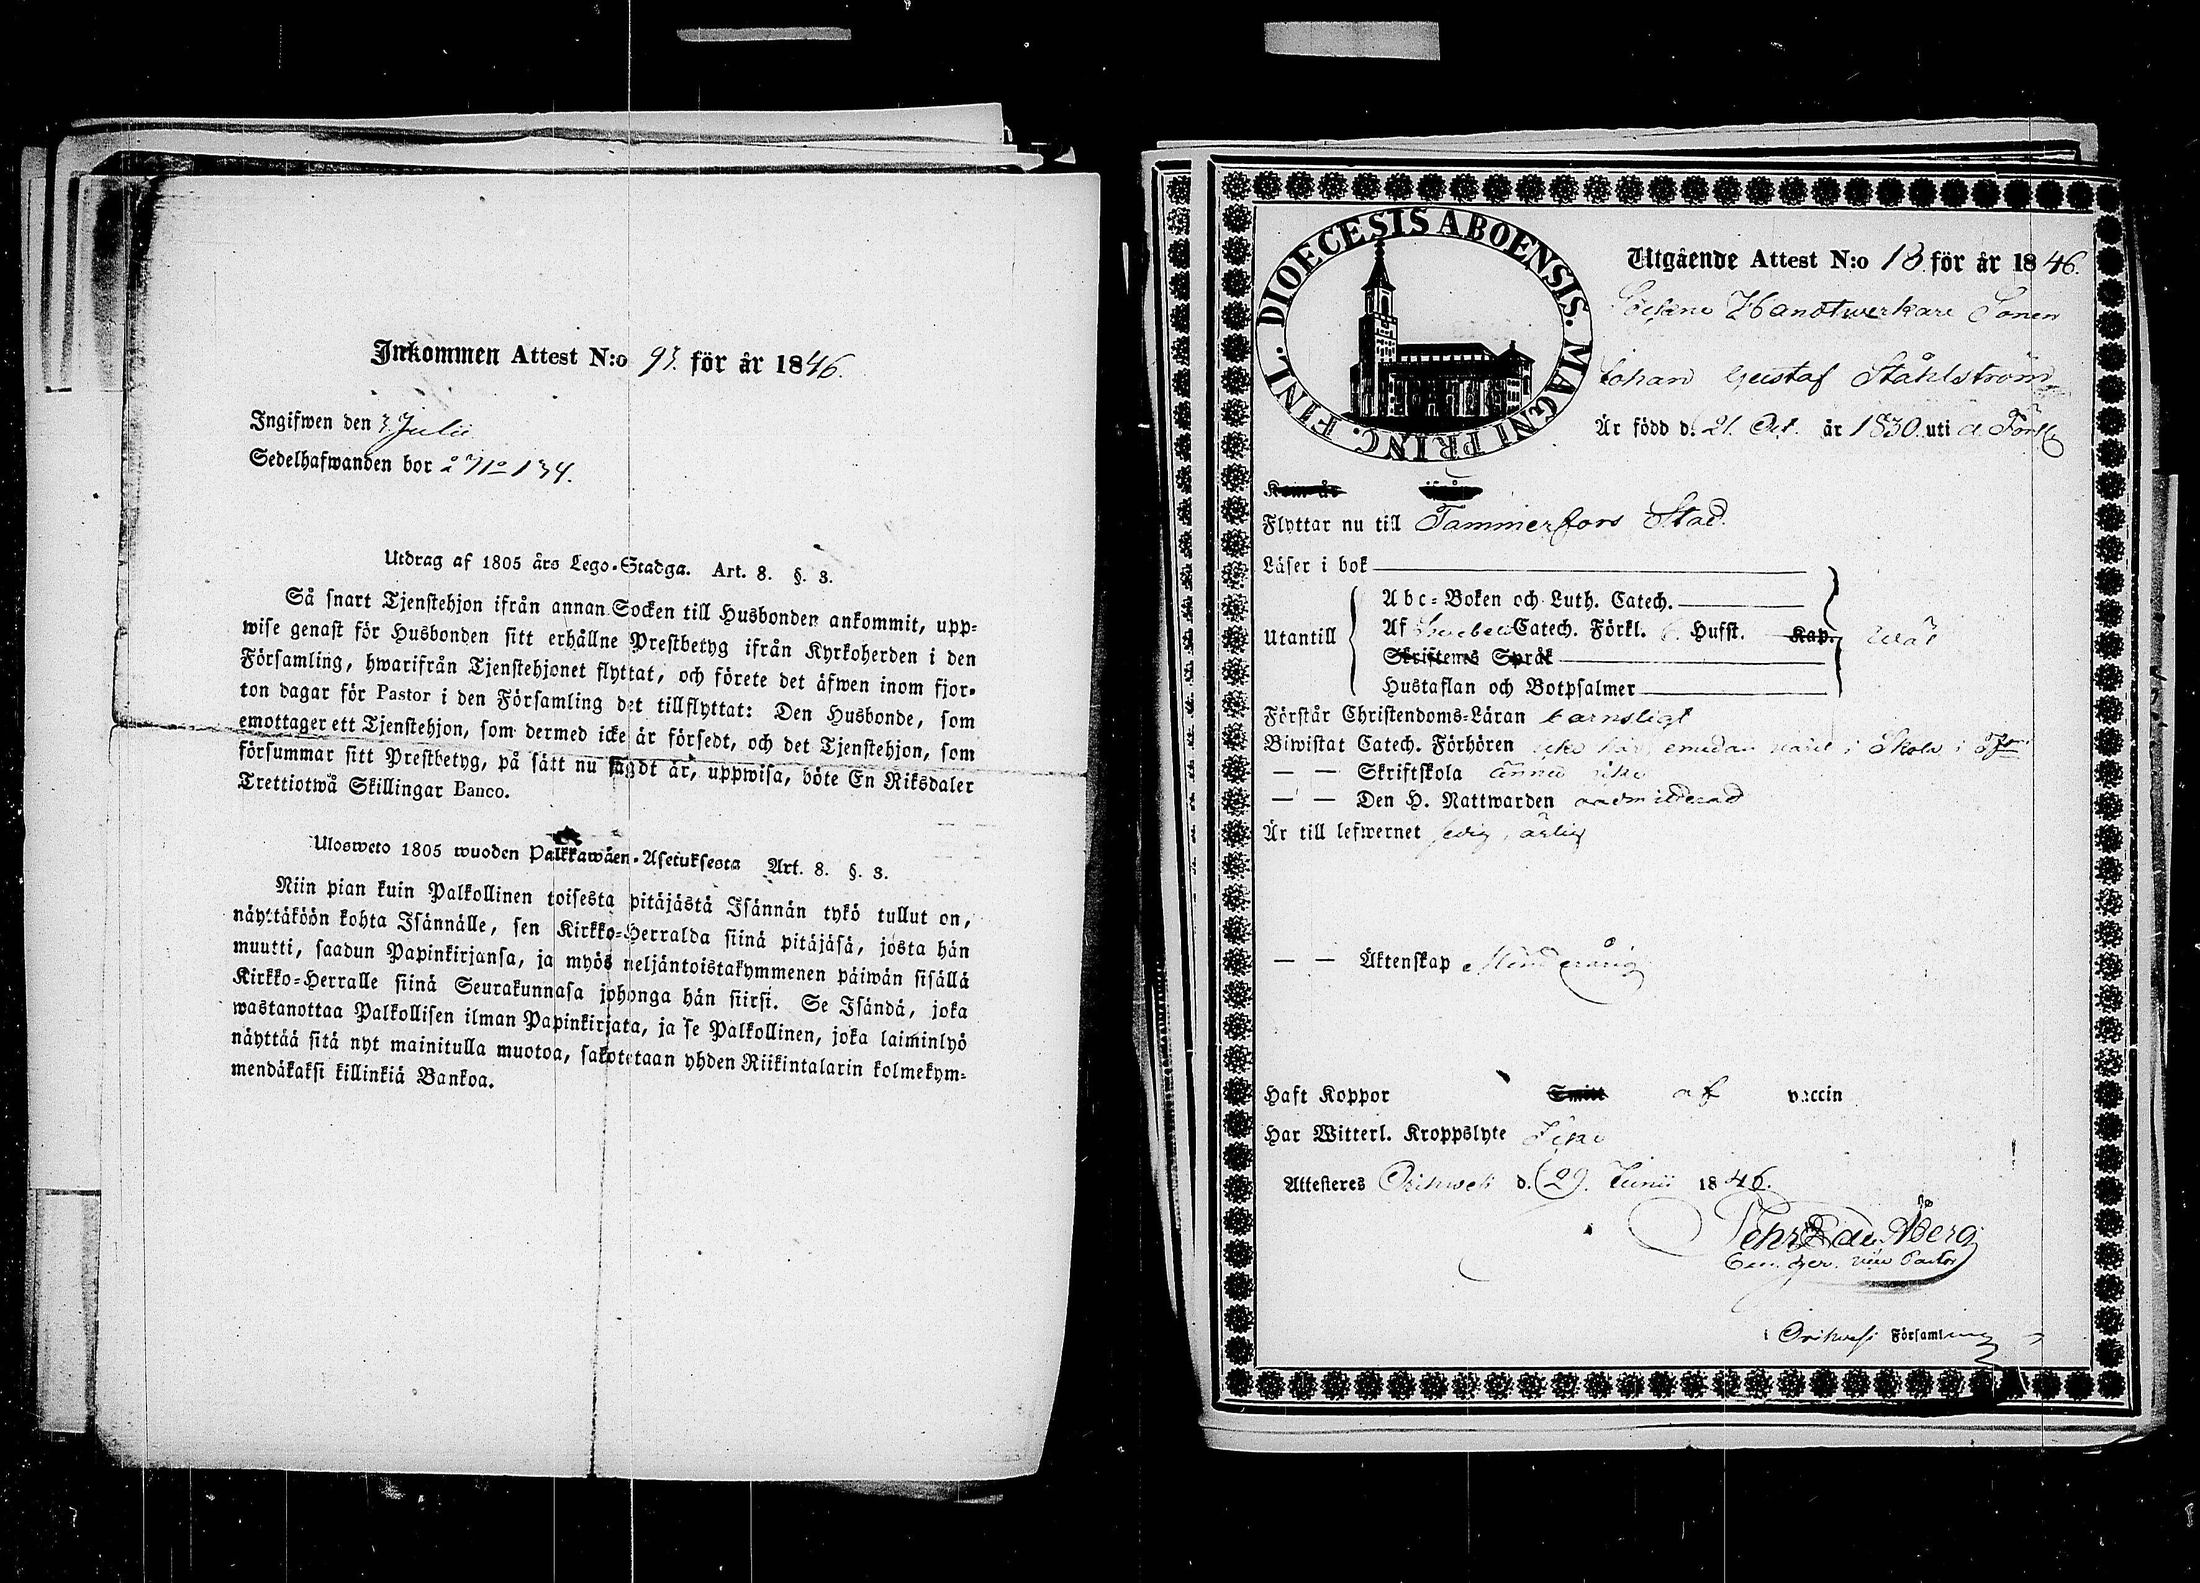 Inkommen Attest N:o 93. för år 1846.
Ingifwen den 3. Julii
Sedelhafwanden bor å No 134.
Utdrag af 1805 års Lego-Stadga. Art. 8. §. 3.
Så snart Tjenstehjon ifrån annan Socken till Husbonden ankommit, upp-
wise genast för Husbonden sitt erhållne Prestbetyg ifrån Kyrkoherden i den
Församling, hwarifrån Tjenstehjonet flyttat, och förete det äfwen inom fjor-
ton dagar för Pastor i den Församling det tillflyttat: Den Husbonde, som
emottager ett Tjenstehjon, som dermed icke är försedt, och det Tjenstehjon, som
försummar sitt Prestbetyg, på sätt nu sagdt är, uppwisa, böte En Riksdaler
Trettiotwå Skillingar Banco.
Ulosweto 1805 wuoden Palkkawäen-Asetuksesta Art. 8. §. 3.
Niin pian kuin Palkollinen toisesta pitäjästä Isännän tykö tullut on,
näyttäköön kohta Isännälle, sen Kirkko-Herralda siinä pitäjäsä, josta hän
muutti, saadun Papinkirjansa, ja myös neljäntoistakymmenen päiwän sisällä
Kirkko-Herralle siinä Seurakunnasa johonga hän siirsi. Se Isändä, joka
wastanottaa Palkollisen ilman Papinkirjata, ja se Palkollinen, joka laiminlyö
näyttää sitä nyt mainitulla muotoa, sakotetaan yhden Riikintalarin kolmekym-
mendäkaksi killinkiä Bankoa.
DIOECESIS ABOENSIS. MAGNI PRINC. FINL.
Utgående Attest N:o 13. för år 1846.
Sockne Handtwerkare Sonen
Johan Gustaf Ståhlström
Är född d. 21. Oct. år 1830. uti d. Förs.
Kom år ifrån
Flyttar nu till Tammerfors Stad.
Läser i bok
Abc-Boken och Luth. Catech.
Utantill Af Svebelii Catech. Förkl. 6. Hufst. Kap.
Skriftenes Språk
Hustaflan och Botpsalmer
Förstår Christendoms-Läran barnsligt
Biwistat Catech. Förhören icke här, emedan varit i Skola i
— — Skriftskola ännu icke
— — Den H. Nattwarden oadmitterad
Är till lefwernet sedig, ärlig
— — Äktenskap Minderårig
Haft Koppor Smitt af vaccin
Har Witterl. Kroppslyte Icke
Attesteres Orihwesi d. 29. Junii 1846.
Pehr Ed. Åberg
vice Pastor
i Orihwesi Församling